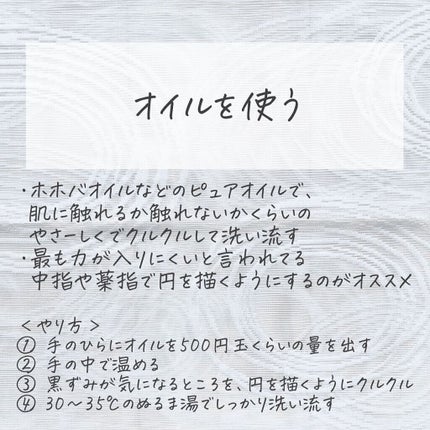 オイルを使う
・ホホバオイルなどのピュアオイルで、
肌に触れるか触れないかくらいの
やさーしくでクルクルして洗い流す
・最も力が入りにくいと言われてる
中指や薬指で円を描くようにするのがオススメ
＜やり方＞
① 手のひらにオイルを500円玉くらいの量を出す
② 手の中で温める
③ 黒ずみが気になるところを、円を描くようにクルクル
④ 30～35℃のぬるま湯でしっかり洗い流す